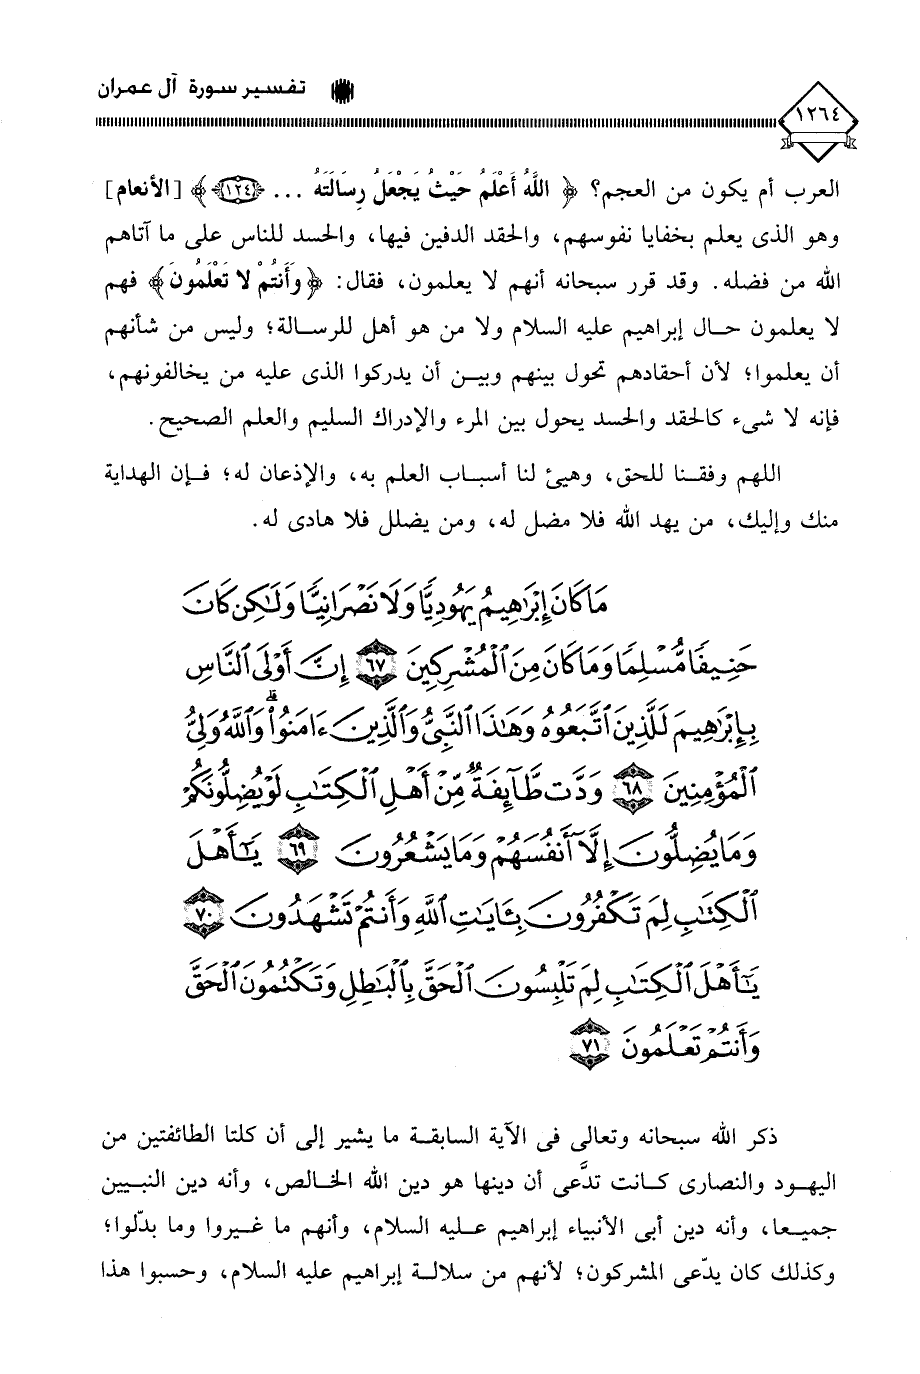 تفسير سورة آل عمران
١٢٦٤
العرب أم يكون من العجم؟ ﴿ اللَّهُ أَعْلَمُ حَيْثُ يَجْعَلُ رِسَالَتَهُ ... ﴿١٢٤﴾ ﴾ [الأنعام]
وهو الذى يعلم بخفايا نفوسهم، والحقد الدفين فيها، والحسد للناس على ما آتاهم
الله من فضله. وقد قرر سبحانه أنهم لا يعلمون، فقال: ﴿ وَأَنتُمْ لا تَعْلَمُونَ ﴾ فهم
لا يعلمون حال إبراهيم عليه السلام ولا من هو أهل للرسالة؛ وليس من شأنهم
أن يعلموا؛ لأن أحقادهم تحول بينهم وبين أن يدركوا الذى عليه من يخالفونهم،
فإنه لا شىء كالحقد والحسد يحول بين المرء والإدراك السليم والعلم الصحيح.
اللهم وفقنا للحق، وهيئ لنا أسباب العلم به، والإذعان له؛ فإن الهداية
منك وإليك، من يهد الله فلا مضل له، ومن يضلل فلا هادى له.
مَا كَانَ إِبْرَٰهِيمُ يَهُودِيًّا وَلَا نَصْرَانِيًّا وَلَٰكِن كَانَ
حَنِيفًا مُّسْلِمًا وَمَا كَانَ مِنَ ٱلْمُشْرِكِينَ ٦٧ إِنَّ أَوْلَى ٱلنَّاسِ
بِإِبْرَٰهِيمَ لَلَّذِينَ ٱتَّبَعُوهُ وَهَٰذَا ٱلنَّبِىُّ وَٱلَّذِينَ ءَامَنُوا۟ ۗ وَٱللَّهُ وَلِىُّ
ٱلْمُؤْمِنِينَ ٦٨ وَدَّت طَّآئِفَةٌ مِّنْ أَهْلِ ٱلْكِتَٰبِ لَوْ يُضِلُّونَكُمْ
وَمَا يُضِلُّونَ إِلَّآ أَنفُسَهُمْ وَمَا يَشْعُرُونَ ٦٩ يَٰٓأَهْلَ
ٱلْكِتَٰبِ لِمَ تَكْفُرُونَ بِـَٔايَٰتِ ٱللَّهِ وَأَنتُمْ تَشْهَدُونَ ٧٠
يَٰٓأَهْلَ ٱلْكِتَٰبِ لِمَ تَلْبِسُونَ ٱلْحَقَّ بِٱلْبَٰطِلِ وَتَكْتُمُونَ ٱلْحَقَّ
وَأَنتُمْ تَعْلَمُونَ ٧١
ذكر الله سبحانه وتعالى فى الآية السابقة ما يشير إلى أن كلتا الطائفتين من
اليهود والنصارى كانت تدَّعى أن دينها هو دين الله الخالص، وأنه دين النبيين
جميعا، وأنه دين أبى الأنبياء إبراهيم عليه السلام، وأنهم ما غيروا وما بدّلوا؛
وكذلك كان يدّعى المشركون؛ لأنهم من سلالة إبراهيم عليه السلام، وحسبوا هذا